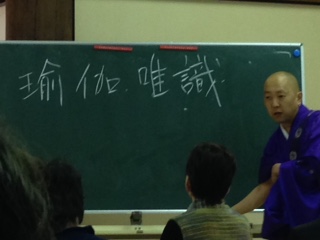 瑜伽唯識